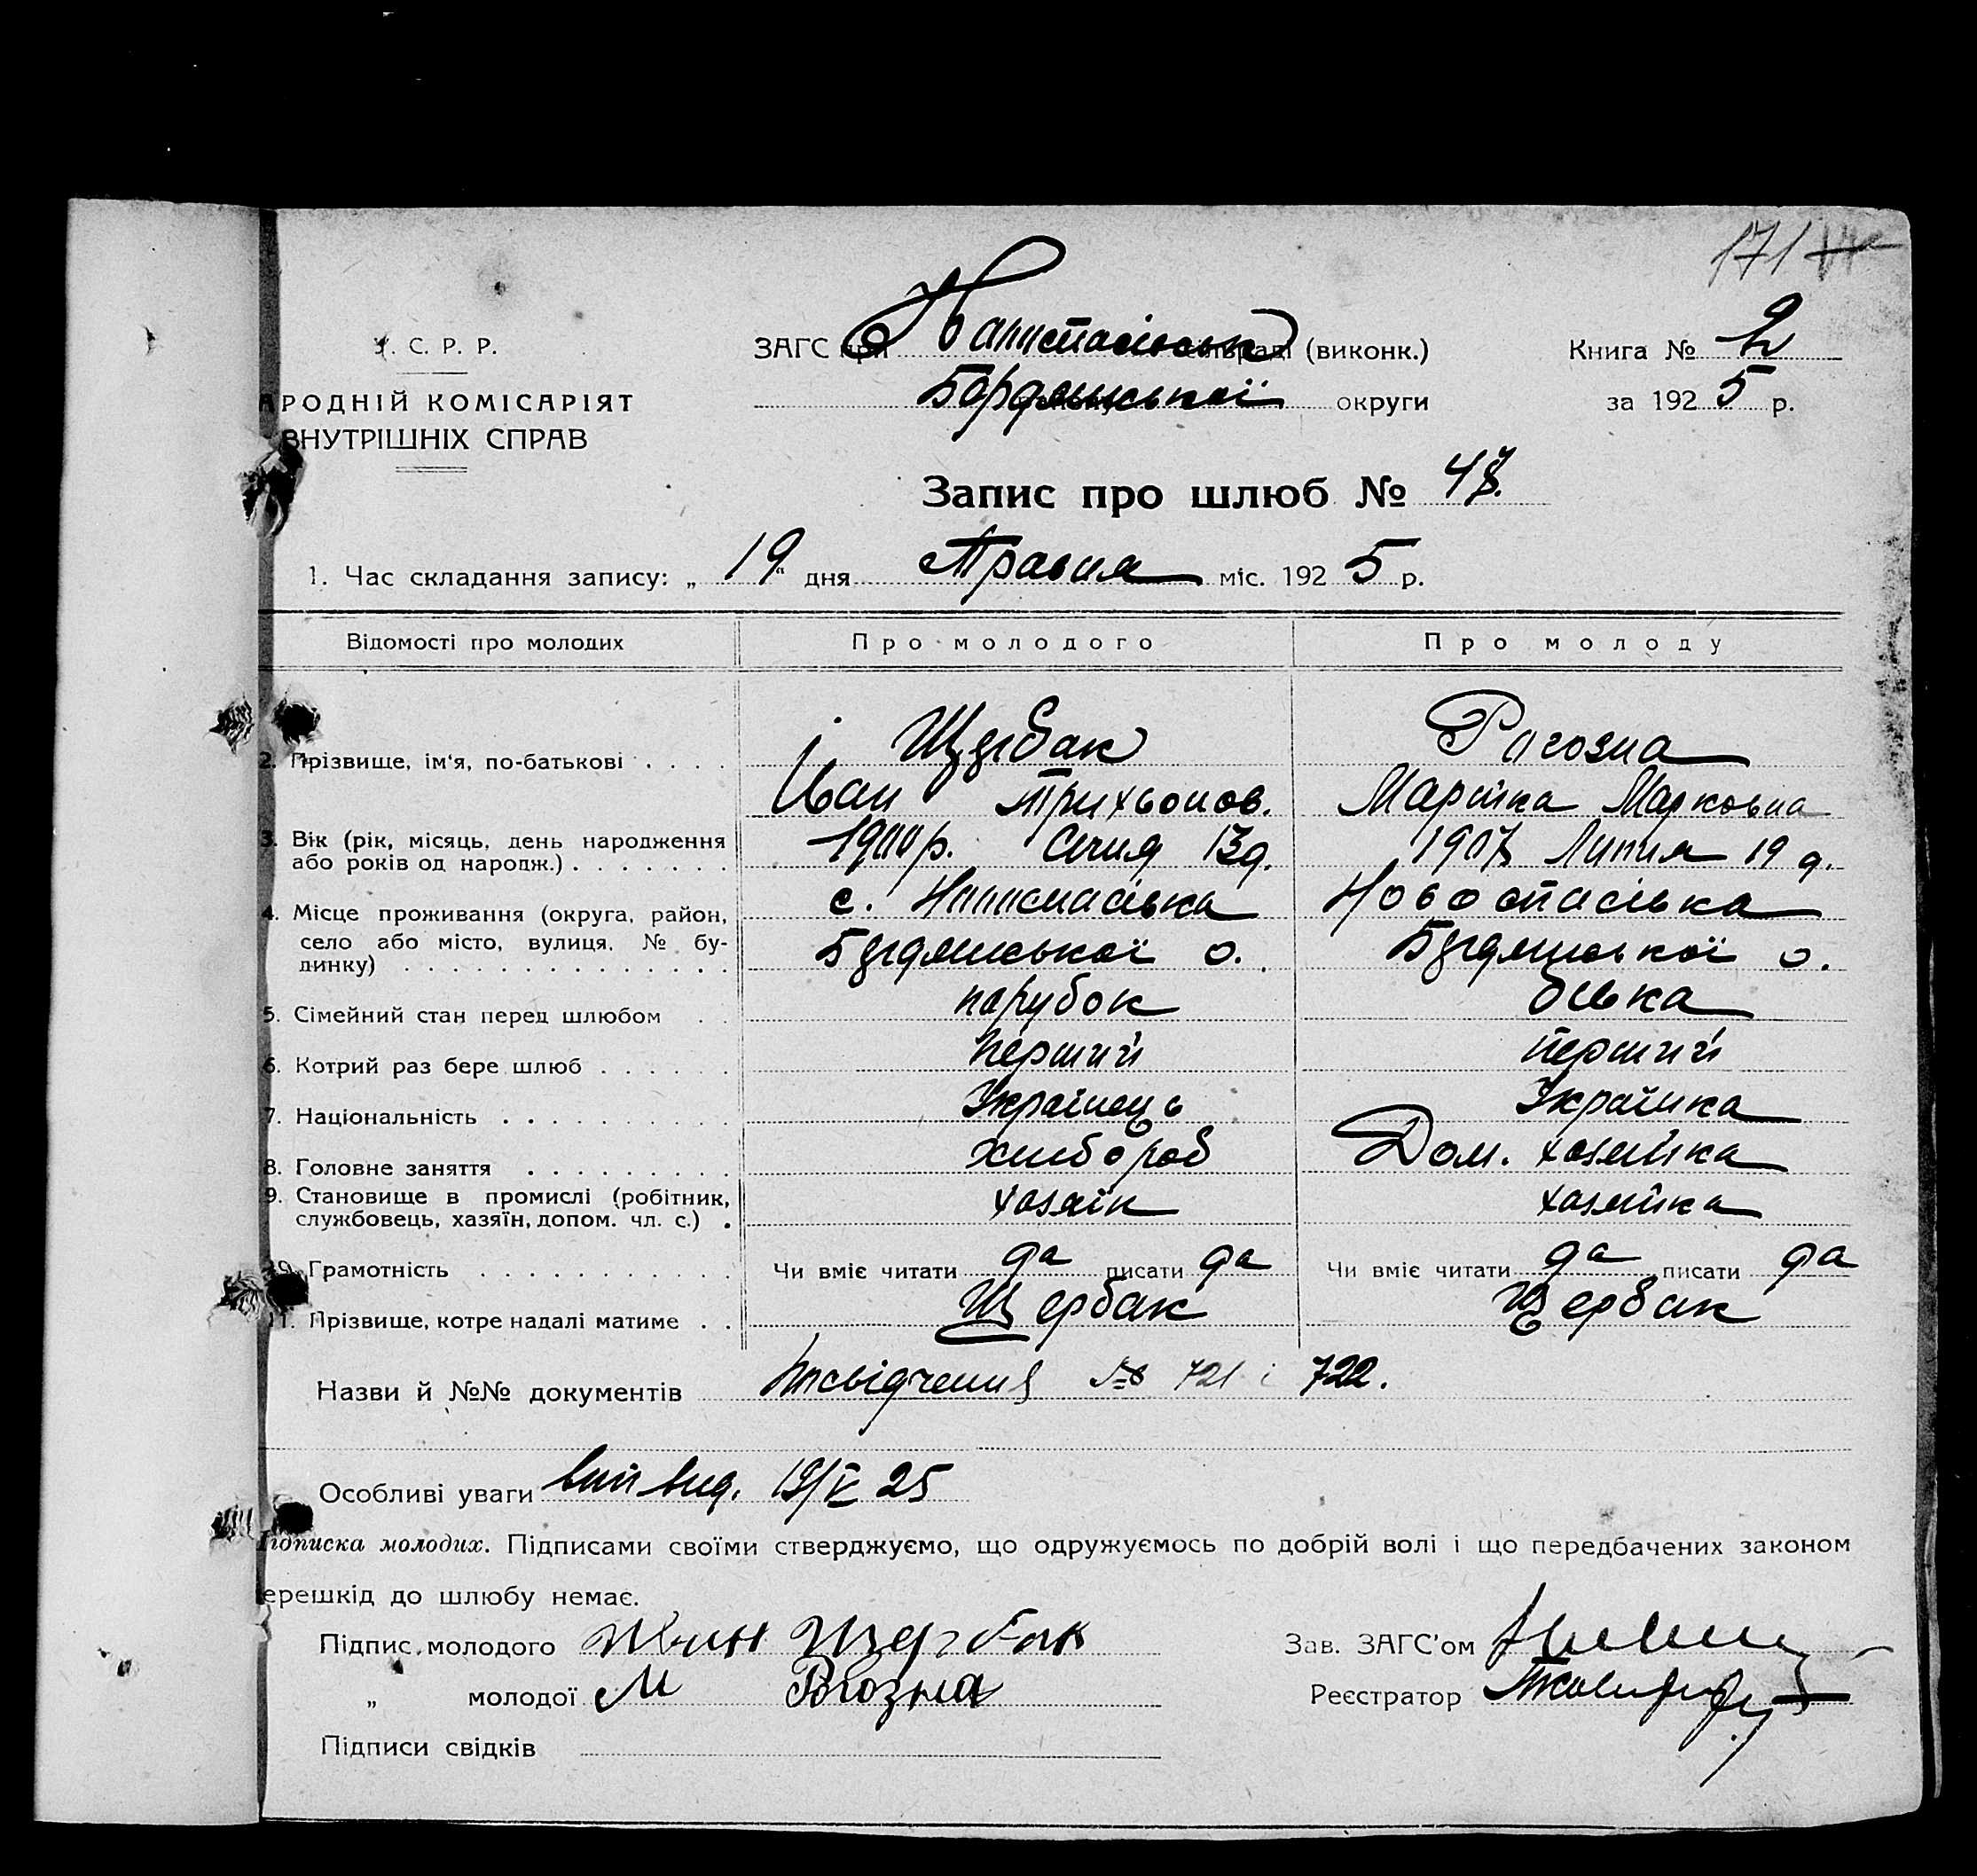 171
У. С. Р. Р.
ЗАГС при (виконк.)
Книга № 2
Бердянської округи
за 1925 р.
НАРОДНІЙ КОМІСАРІЯТ
ВНУТРІШНІХ СПРАВ
Запис про шлюб № 47.
1. Час складання запису: „19“ дня Травня міс. 1925 р.
Відомості про молодих Про молодого Про молоду
Щербак Рогозна
2. Прізвище, ім'я, по-батькові
Іван Трихьонов. Марійка Марковна
3. Вік (рік, місяць, день народження
або років од народж.) 1900 р. Січня 13 д. 1907 Липня 19 д.
4. Місце проживання (округа, район, с. Новоспасівка
село або місто, вулиця, № бу-
динку) Бердянської о. Бердянської о.
5. Сімейний стан перед шлюбом парубок дівка
6. Котрий раз бере шлюб перший перший
7. Національність Українець Українка
8. Головне заняття хлібороб Дом. хазяйка
9. Становище в промислі (робітник,
службовець, хазяїн, допом. чл. с.) хазяїн хазяйка
10. Грамотність Чи вміє читати да писати да Чи вміє читати да писати да
11. Прізвище, котре надалі матиме Щербак Щербак
Назви й №№ документів Посвідчення № 721 і 722.
Особливі уваги 19/V 25
Підписка молодих. Підписами своїми стверджуємо, що одружуємось по добрій волі і що передбачених законом
перешкід до шлюбу немає.
Підпис молодого Иван Щербак Зав. ЗАГС'ом
„ молодої М Рогозна Реєстратор
Підписи свідків